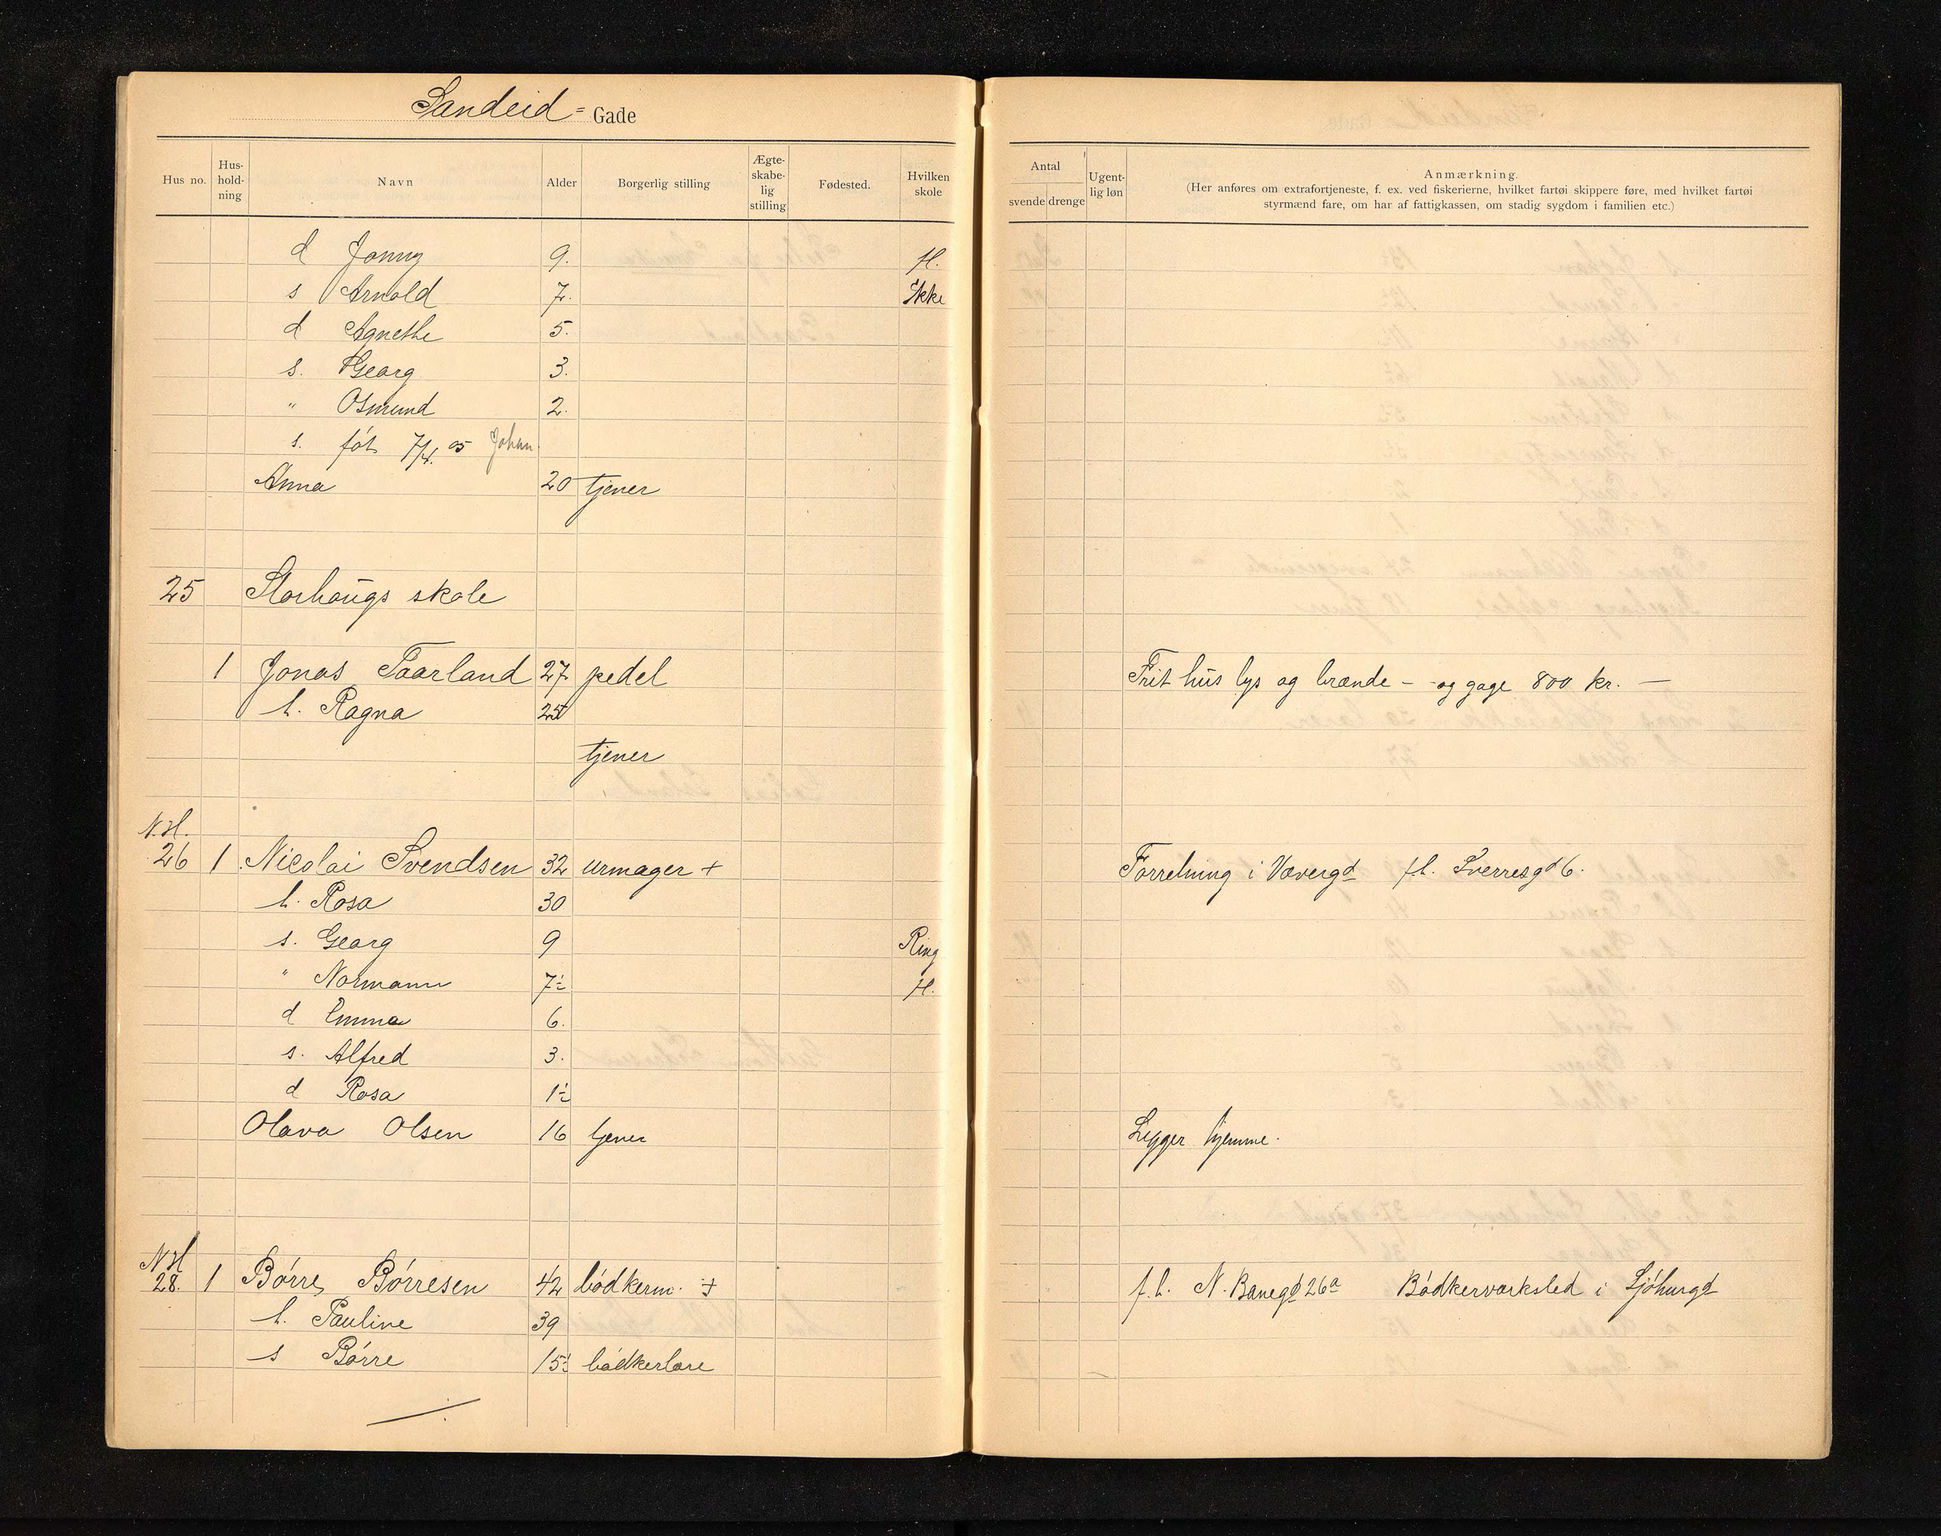 Sandeid = Gade
Hus no. Hus-holdning Navn Alder Borgerlig stilling Ægteskabelig stilling Fødested. Hvilken skole Antal svende drenge Ugentlig løn Anmærkning.
(Her anføres om extrafortjeneste, f. ex. ved fiskerierne, hvilket fartøi skippere føre, med hvilket fartøi
styrmænd fare, om har af fattigkassen, om stadig sygdom i familien etc.)
d Jonny 9. H.
s Arnold 7. Ikke
d Agnethe 5.
s. Georg 3.
" Osmund 2.
s. føt 7/4. 05 Johan.
Anna 20 tjener
25 Storhougs skole
1 Jonas Taarland 27 pedel Frit hus lys og brænde - og gage 800 kr. —
h. Ragna 25
tjener
N.H.
26 1 Nicolai Svendsen 32 urmager + Forretning i Vævergd fl. Sverresgd 6.
h. Rosa 30
s. Georg 9 Ring
" Normann 7½ H.
d Emma 6.
s. Alfred 3.
d Rosa 1½
Olava Olsen 16 tjener Ligger hjemme.
N.H
28. 1 Børre Børresen 42 bødkerm. + f.l. N. Banegd 26a Bødkerværksted i Sjøhusgd
h. Pauline 39
s Børre 15½ bødkerlære